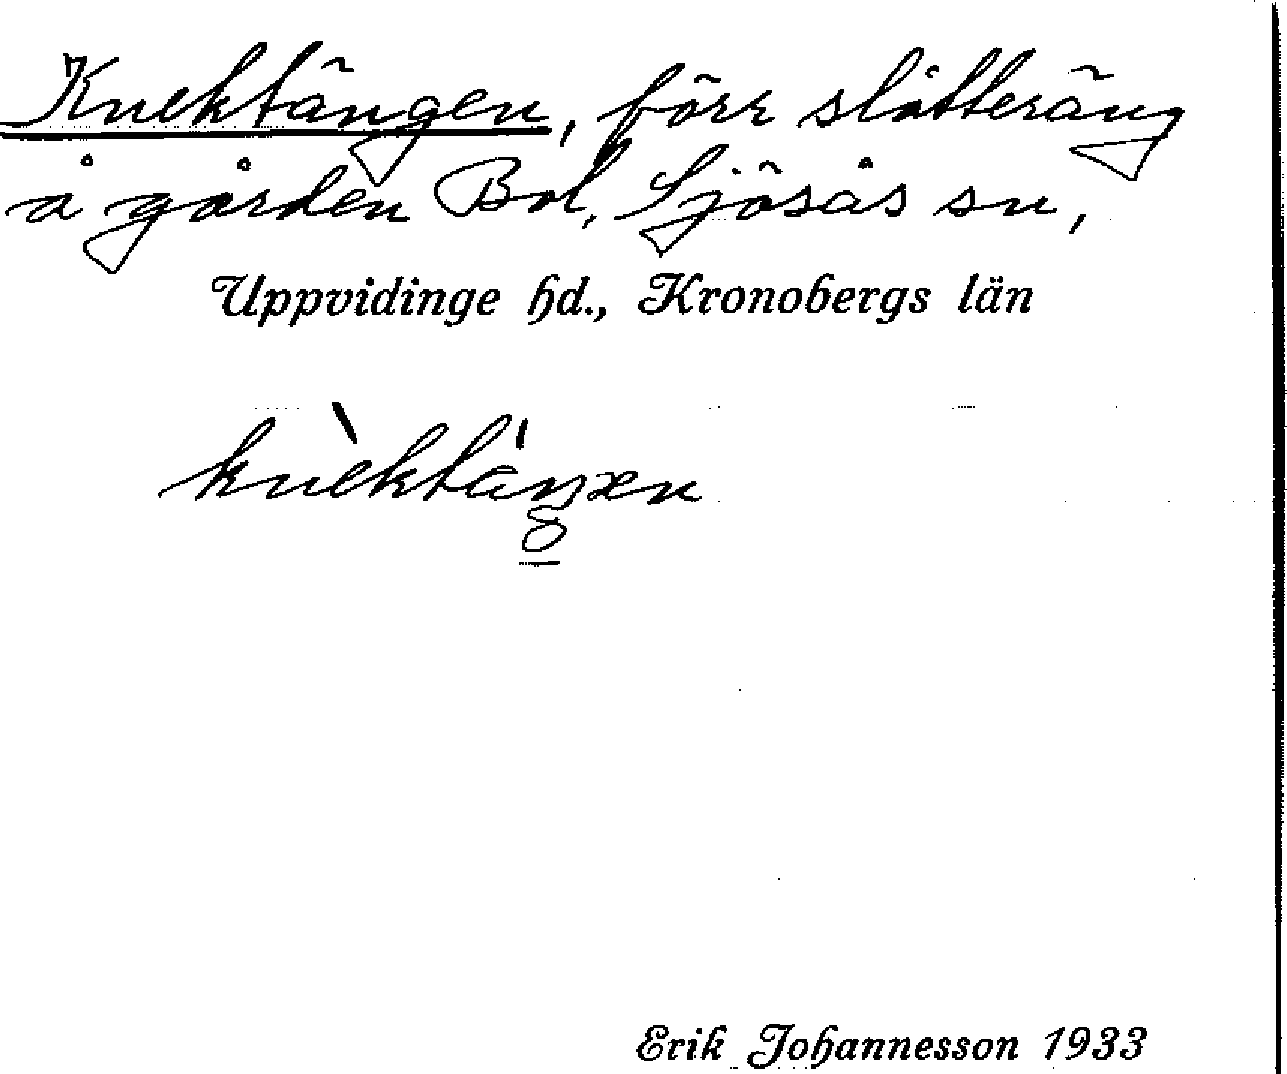 Knektängen, förr slåtteräng
å gården Bol, Sjösås sn,
Uppvidinge hd., Kronobergs län
knèktáŋen
Erik Johannesson 1933